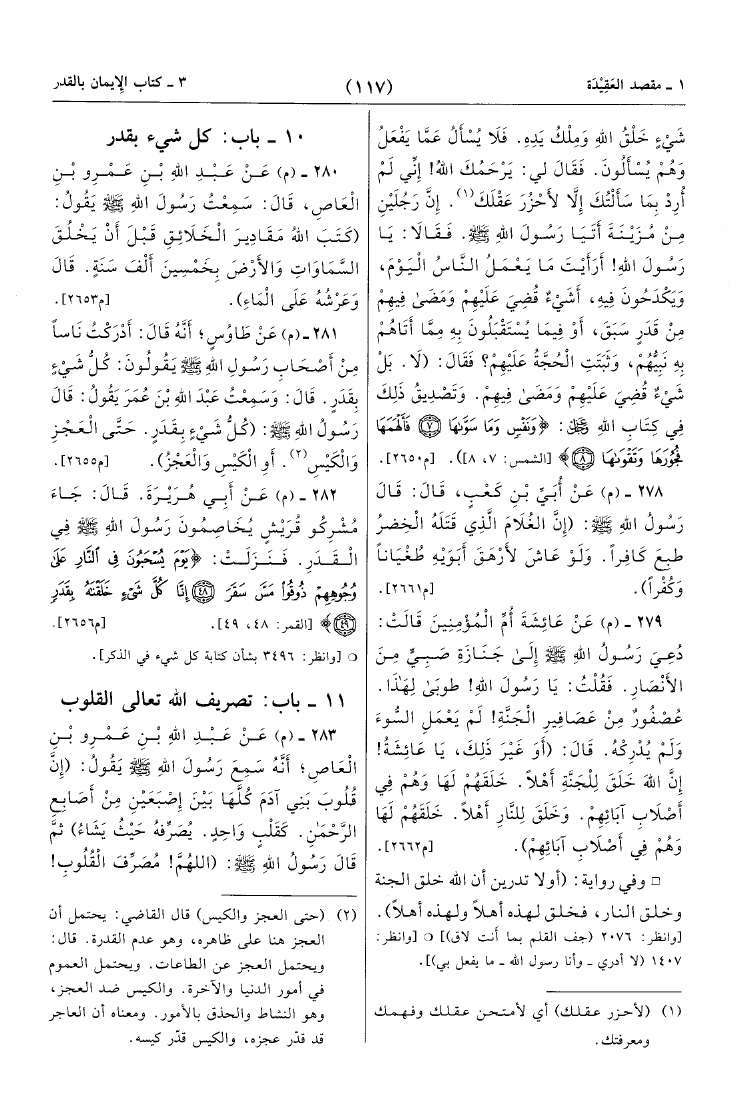 ١ ـ مقصد العَقِيْدَة
(١١٧)
٣ ـ كتاب الإيمان بالقدر
شَيْءٍ خَلْقُ اللهِ وَمِلْكُ يَدِهِ. فَلَا يُسْأَلُ عَمَّا يَفْعَلُ
وَهُمْ يُسْأَلُونَ. فَقَالَ لي: يَرْحَمُكَ اللهُ! إِنِّي لَمْ
أُرِدْ بِمَا سَأَلْتُكَ إِلَّا لأَحْزُرَ عَقْلَكَ(١). إِنَّ رَجُلَيْنِ
مِنْ مُزَيْنَةَ أَتَيَا رَسُولَ اللهِ ﷺ. فَقَالَا: يَا
رَسُولَ اللهِ! أَرَأَيْتَ مَا يَعْمَلُ النَّاسُ الْيَوْمَ،
وَيَكْدَحُونَ فِيهِ، أَشَيْءٌ قُضِيَ عَلَيْهِمْ وَمَضَىٰ فِيهِمْ
مِنْ قَدَرٍ سَبَقَ، أَوْ فِيمَا يُسْتَقْبَلُونَ بِهِ مِمَّا أَتَاهُمْ
بِهِ نَبِيُّهُمْ، وَثَبَتَتِ الْحُجَّةُ عَلَيْهِمْ؟ فَقَالَ: (لَا. بَلْ
شَيْءٌ قُضِيَ عَلَيْهِمْ وَمَضَىٰ فِيهِمْ. وَتَصْدِيقُ ذَلِكَ
فِي كِتَابِ اللهِ ﷻ: ﴿وَنَفْسٍ وَمَا سَوَّىٰهَا ۝٧ فَأَلْهَمَهَا
فُجُورَهَا وَتَقْوَىٰهَا ۝٨﴾ [الشمس: ٧، ٨]). [م٢٦٥٠].
٢٧٨ ـ (م) عَنْ أُبَيِّ بْنِ كَعْبٍ، قَالَ: قَالَ
رَسُولُ اللهِ ﷺ: (إِنَّ الْغُلَامَ الَّذِي قَتَلَهُ الْخَضِرُ
طُبِعَ كَافِراً. وَلَوْ عَاشَ لأَرْهَقَ أَبَوَيْهِ طُغْيَاناً
وَكُفْراً). [م٢٦٦١].
٢٧٩ ـ (م) عَنْ عَائِشَةَ أُمِّ الْمُؤْمِنِينَ قَالَتْ:
دُعِيَ رَسُولُ اللهِ ﷺ إِلَىٰ جَنَازَةِ صَبِيٍّ مِنَ
الأَنْصَارِ. فَقُلْتُ: يَا رَسُولَ اللهِ! طوبَىٰ لِهَٰذَا.
عُصْفُورٌ مِنْ عَصَافِيرِ الْجَنَّةِ! لَمْ يَعْمَلِ السُّوءَ
وَلَمْ يُدْرِكْهُ. قَالَ: (أَوَ غَيْرَ ذَلِكَ، يَا عَائِشَةُ!
إِنَّ اللهَ خَلَقَ لِلْجَنَّةِ أَهْلاً. خَلَقَهُمْ لَهَا وَهُمْ فِي
أَصْلَابِ آبَائِهِمْ. وَخَلَقَ لِلنَّارِ أَهْلاً. خَلَقَهُمْ لَهَا
وَهُمْ فِي أَصْلَابِ آبَائِهِمْ). [م٢٦٦٢].
□ وفي رواية: (أولا تدرين أن الله خلق الجنة
وخلق النار، فخلق لهذه أهلاً ولهذه أهلاً).
[وانظر: ٢٠٧٦ (جف القلم بما أنت لاق)] ○ [وانظر:
١٤٠٧ (لا أدري ـ وأنا رسول الله ـ ما يفعل بي)].
(١) (لأحزر عقلك) أي لأمتحن عقلك وفهمك
ومعرفتك.
١٠ ـ باب: كل شيء بقدر
٢٨٠ ـ (م) عَنْ عَبْدِ اللهِ بْنِ عَمْرِو بْنِ
الْعَاصِ، قَالَ: سَمِعْتُ رَسُولَ اللهِ ﷺ يَقُولُ:
(كَتَبَ اللهُ مَقَادِيرَ الْخَلَائِقِ قَبْلَ أَنْ يَخْلُقَ
السَّمَاوَاتِ وَالأَرْضَ بِخَمْسِينَ أَلْفَ سَنَةٍ. قَالَ
وَعَرْشُهُ عَلَى الْمَاءِ). [م٢٦٥٣].
٢٨١ ـ (م) عَنْ طَاوُسٍ؛ أَنَّهُ قَالَ: أَدْرَكْتُ نَاساً
مِنْ أَصْحَابِ رَسُولِ اللهِ ﷺ يَقُولُونَ: كُلُّ شَيْءٍ
بِقَدَرٍ. قَالَ: وَسَمِعْتُ عَبْدَ اللهِ بْنَ عُمَرَ يَقُولُ: قَالَ
رَسُولُ اللهِ ﷺ: (كُلُّ شَيْءٍ بِقَدَرٍ. حَتَّى الْعَجْزِ
وَالْكَيْسِ(٢). أَوِ الْكَيْسِ وَالْعَجْزُ). [م٢٦٥٥].
٢٨٢ ـ (م) عَنْ أَبِي هُرَيْرَةَ. قَالَ: جَاءَ
مُشْرِكُو قُرَيْشٍ يُخَاصِمُونَ رَسُولَ اللهِ ﷺ فِي
الْقَدَرِ. فَنَزَلَتْ: ﴿يَوْمَ يُسْحَبُونَ فِى ٱلنَّارِ عَلَىٰ
وُجُوهِهِمْ ذُوقُوا۟ مَسَّ سَقَرَ ۝٤٨ إِنَّا كُلَّ شَىْءٍ خَلَقْنَٰهُ بِقَدَرٍ
۝٤٩﴾ [القمر: ٤٨، ٤٩]. [م٢٦٥٦].
○ [وانظر: ٣٤٩٦ بشأن كتابة كل شيء في الذكر].
١١ ـ باب: تصريف الله تعالى القلوب
٢٨٣ ـ (م) عَنْ عَبْدِ اللهِ بْنِ عَمْرِو بْنِ
الْعَاصِ؛ أَنَّهُ سَمِعَ رَسُولَ اللهِ ﷺ يَقُولُ: (إِنَّ
قُلُوبَ بَنِي آدَمَ كُلَّهَا بَيْنَ إِصْبَعَيْنِ مِنْ أَصَابِعِ
الرَّحْمَٰنِ. كَقَلْبٍ وَاحِدٍ. يُصَرِّفُهُ حَيْثُ يَشَاءُ) ثُمَّ
قَالَ رَسُولُ اللهِ ﷺ: (اللهُمَّ! مُصَرِّفَ الْقُلُوبِ!
(٢) (حتى العجز والكيس) قال القاضي: يحتمل أن
العجز هنا على ظاهره، وهو عدم القدرة. قال:
ويحتمل العجز عن الطاعات. ويحتمل العموم
في أمور الدنيا والآخرة. والكيس ضد العجز،
وهو النشاط والحذق بالأمور. ومعناه أن العاجز
قد قدّر عجزه، والكيس قدّر كيسه.